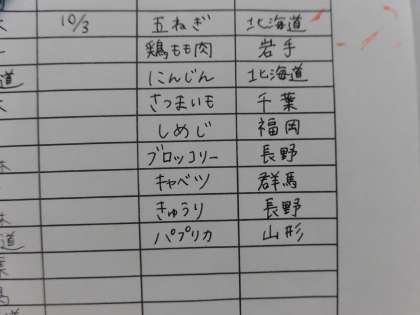 10/3 五ねぎ 北海道
鶏もも肉 岩手
道 にんじん 北海道
さつまいも 千葉
しめじ 福岡
ブロッコリー 長野
キャベツ 群馬
きゅうり 長野
道 パプリカ 山形